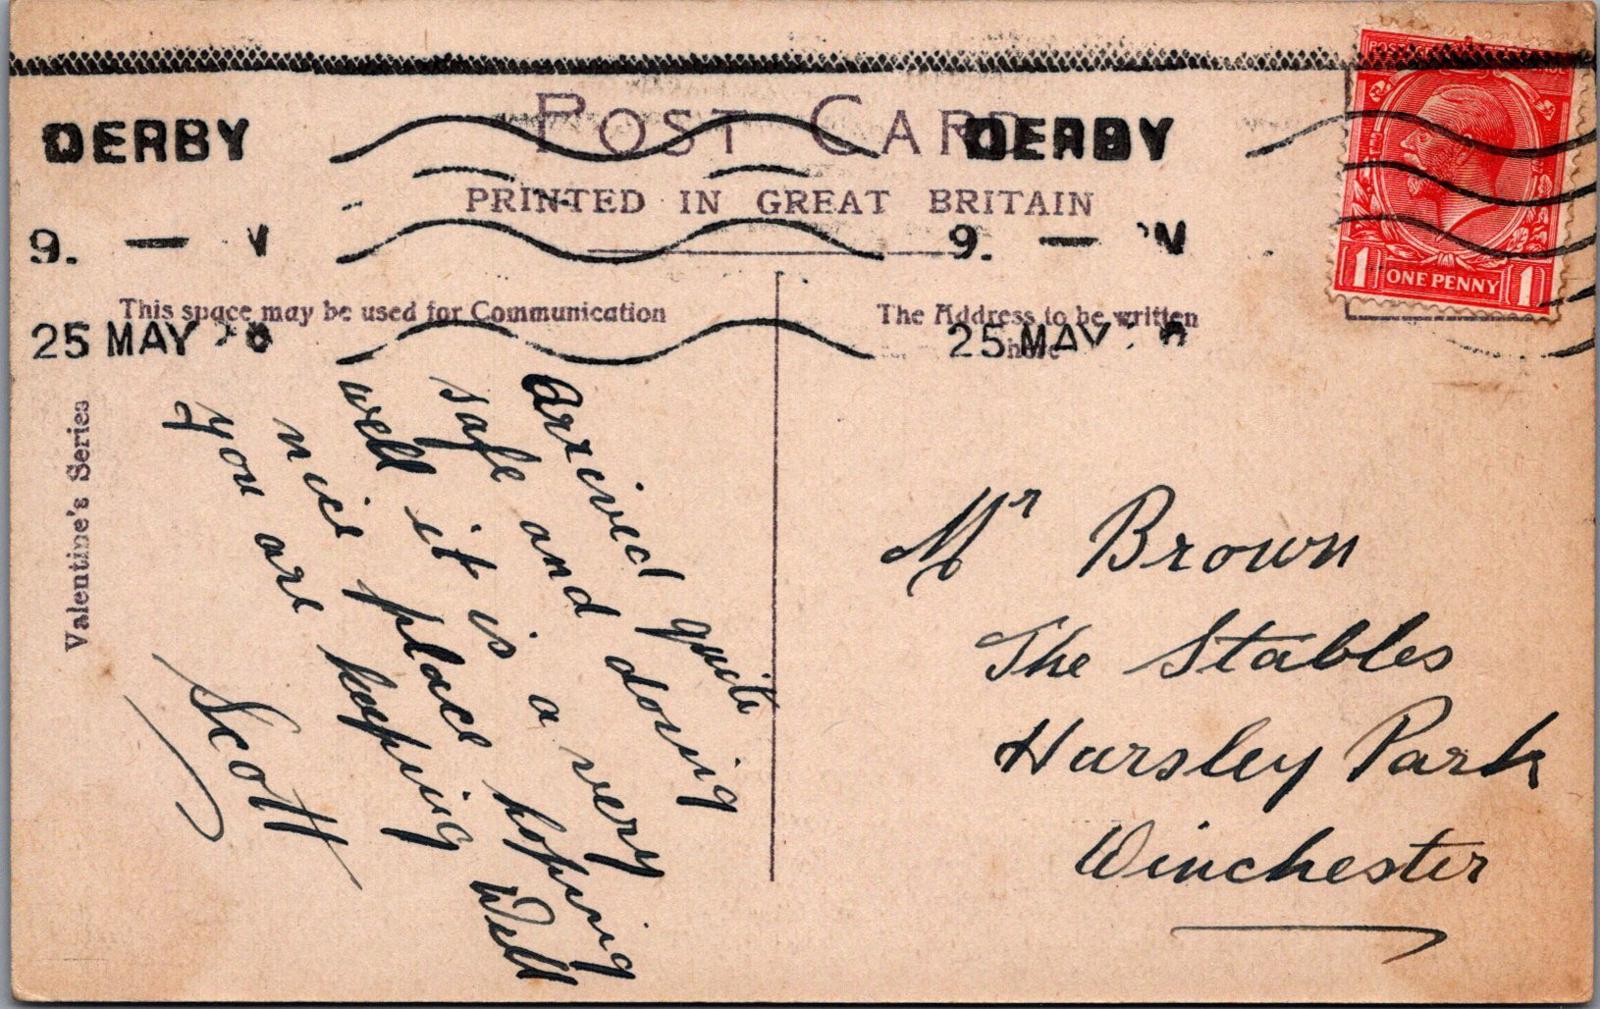 POST CARD
PRINTED IN GREAT BRITAIN
DERBY
DERBY
9. —
9. —
25 MAY
25 MAY
ONE PENNY
1 1
This space may be used for Communication
The Address to be written
here
Valentine's Series
Arrived quite
safe and doing
well it is a very
nice place hoping
you are keeping Well
Scott
Mr Brown
The Stables
Hursley Park
Winchester